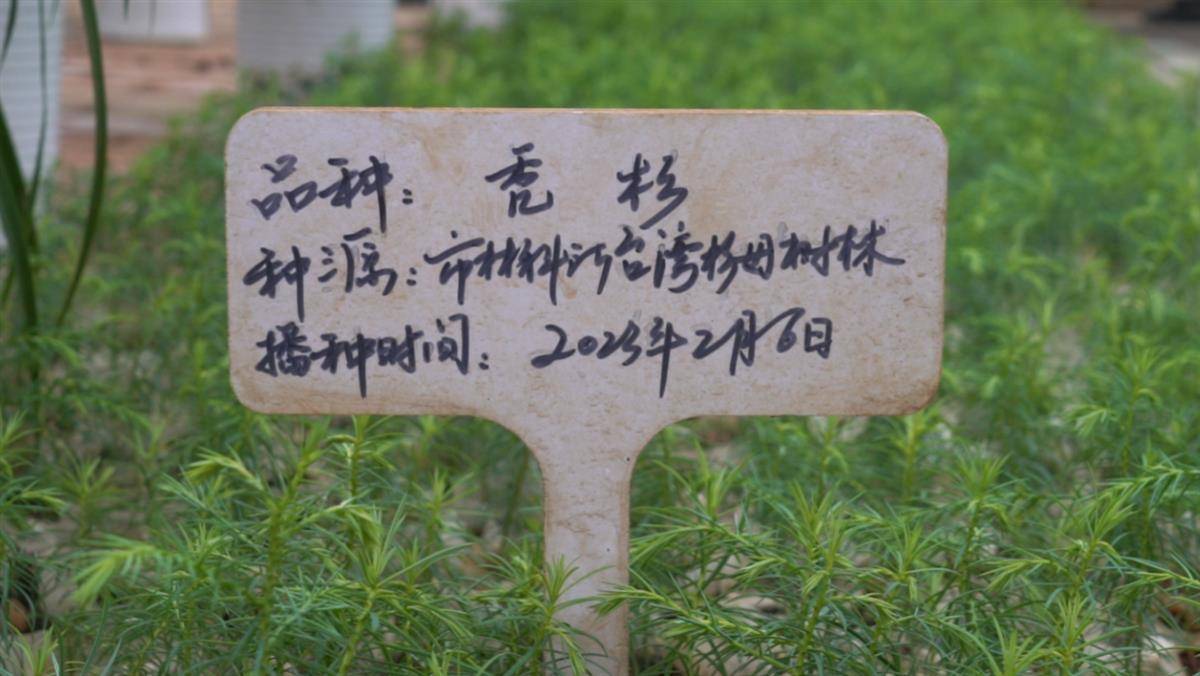 品种：秃杉
种源：市林科所台湾杉母树林
播种时间：2023年2月6日